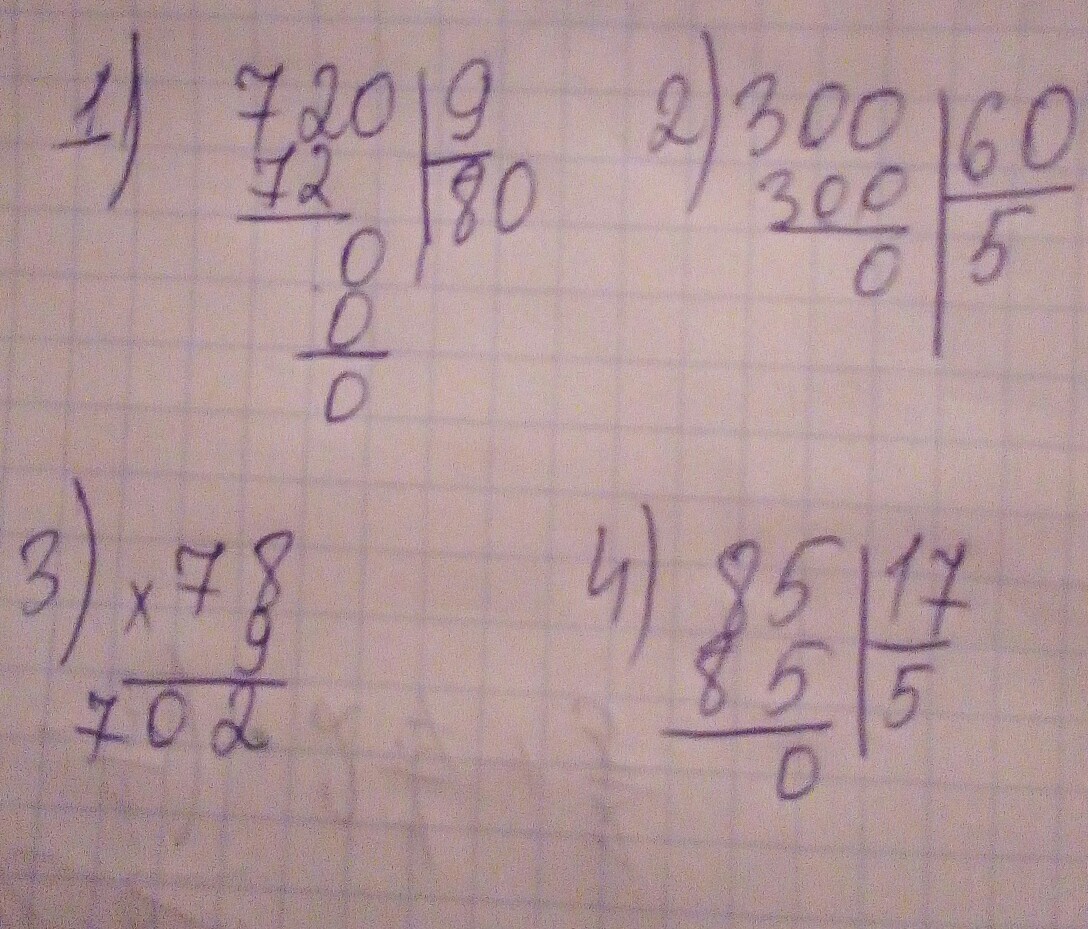 1) 720 | 9
72 | 80
0
0
0
2) 300 | 60
300 | 5
0
3) × 78
9
702
4) 85 | 17
85 | 5
0